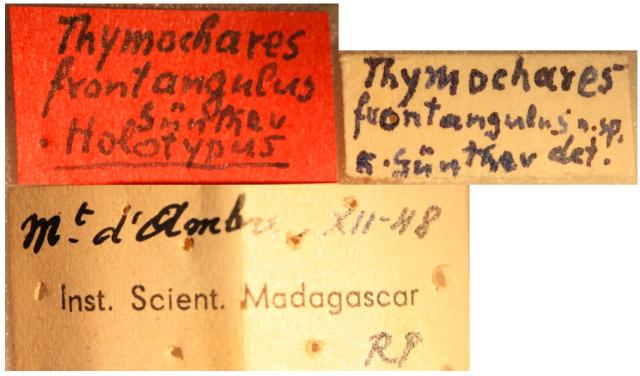 Thymochares
frontangulus
Günther
Holotypus
Thymochares
frontangulus n. sp.
K. Günther det.
Mt. d'Ambre, XII-48
Inst. Scient. Madagascar
RP